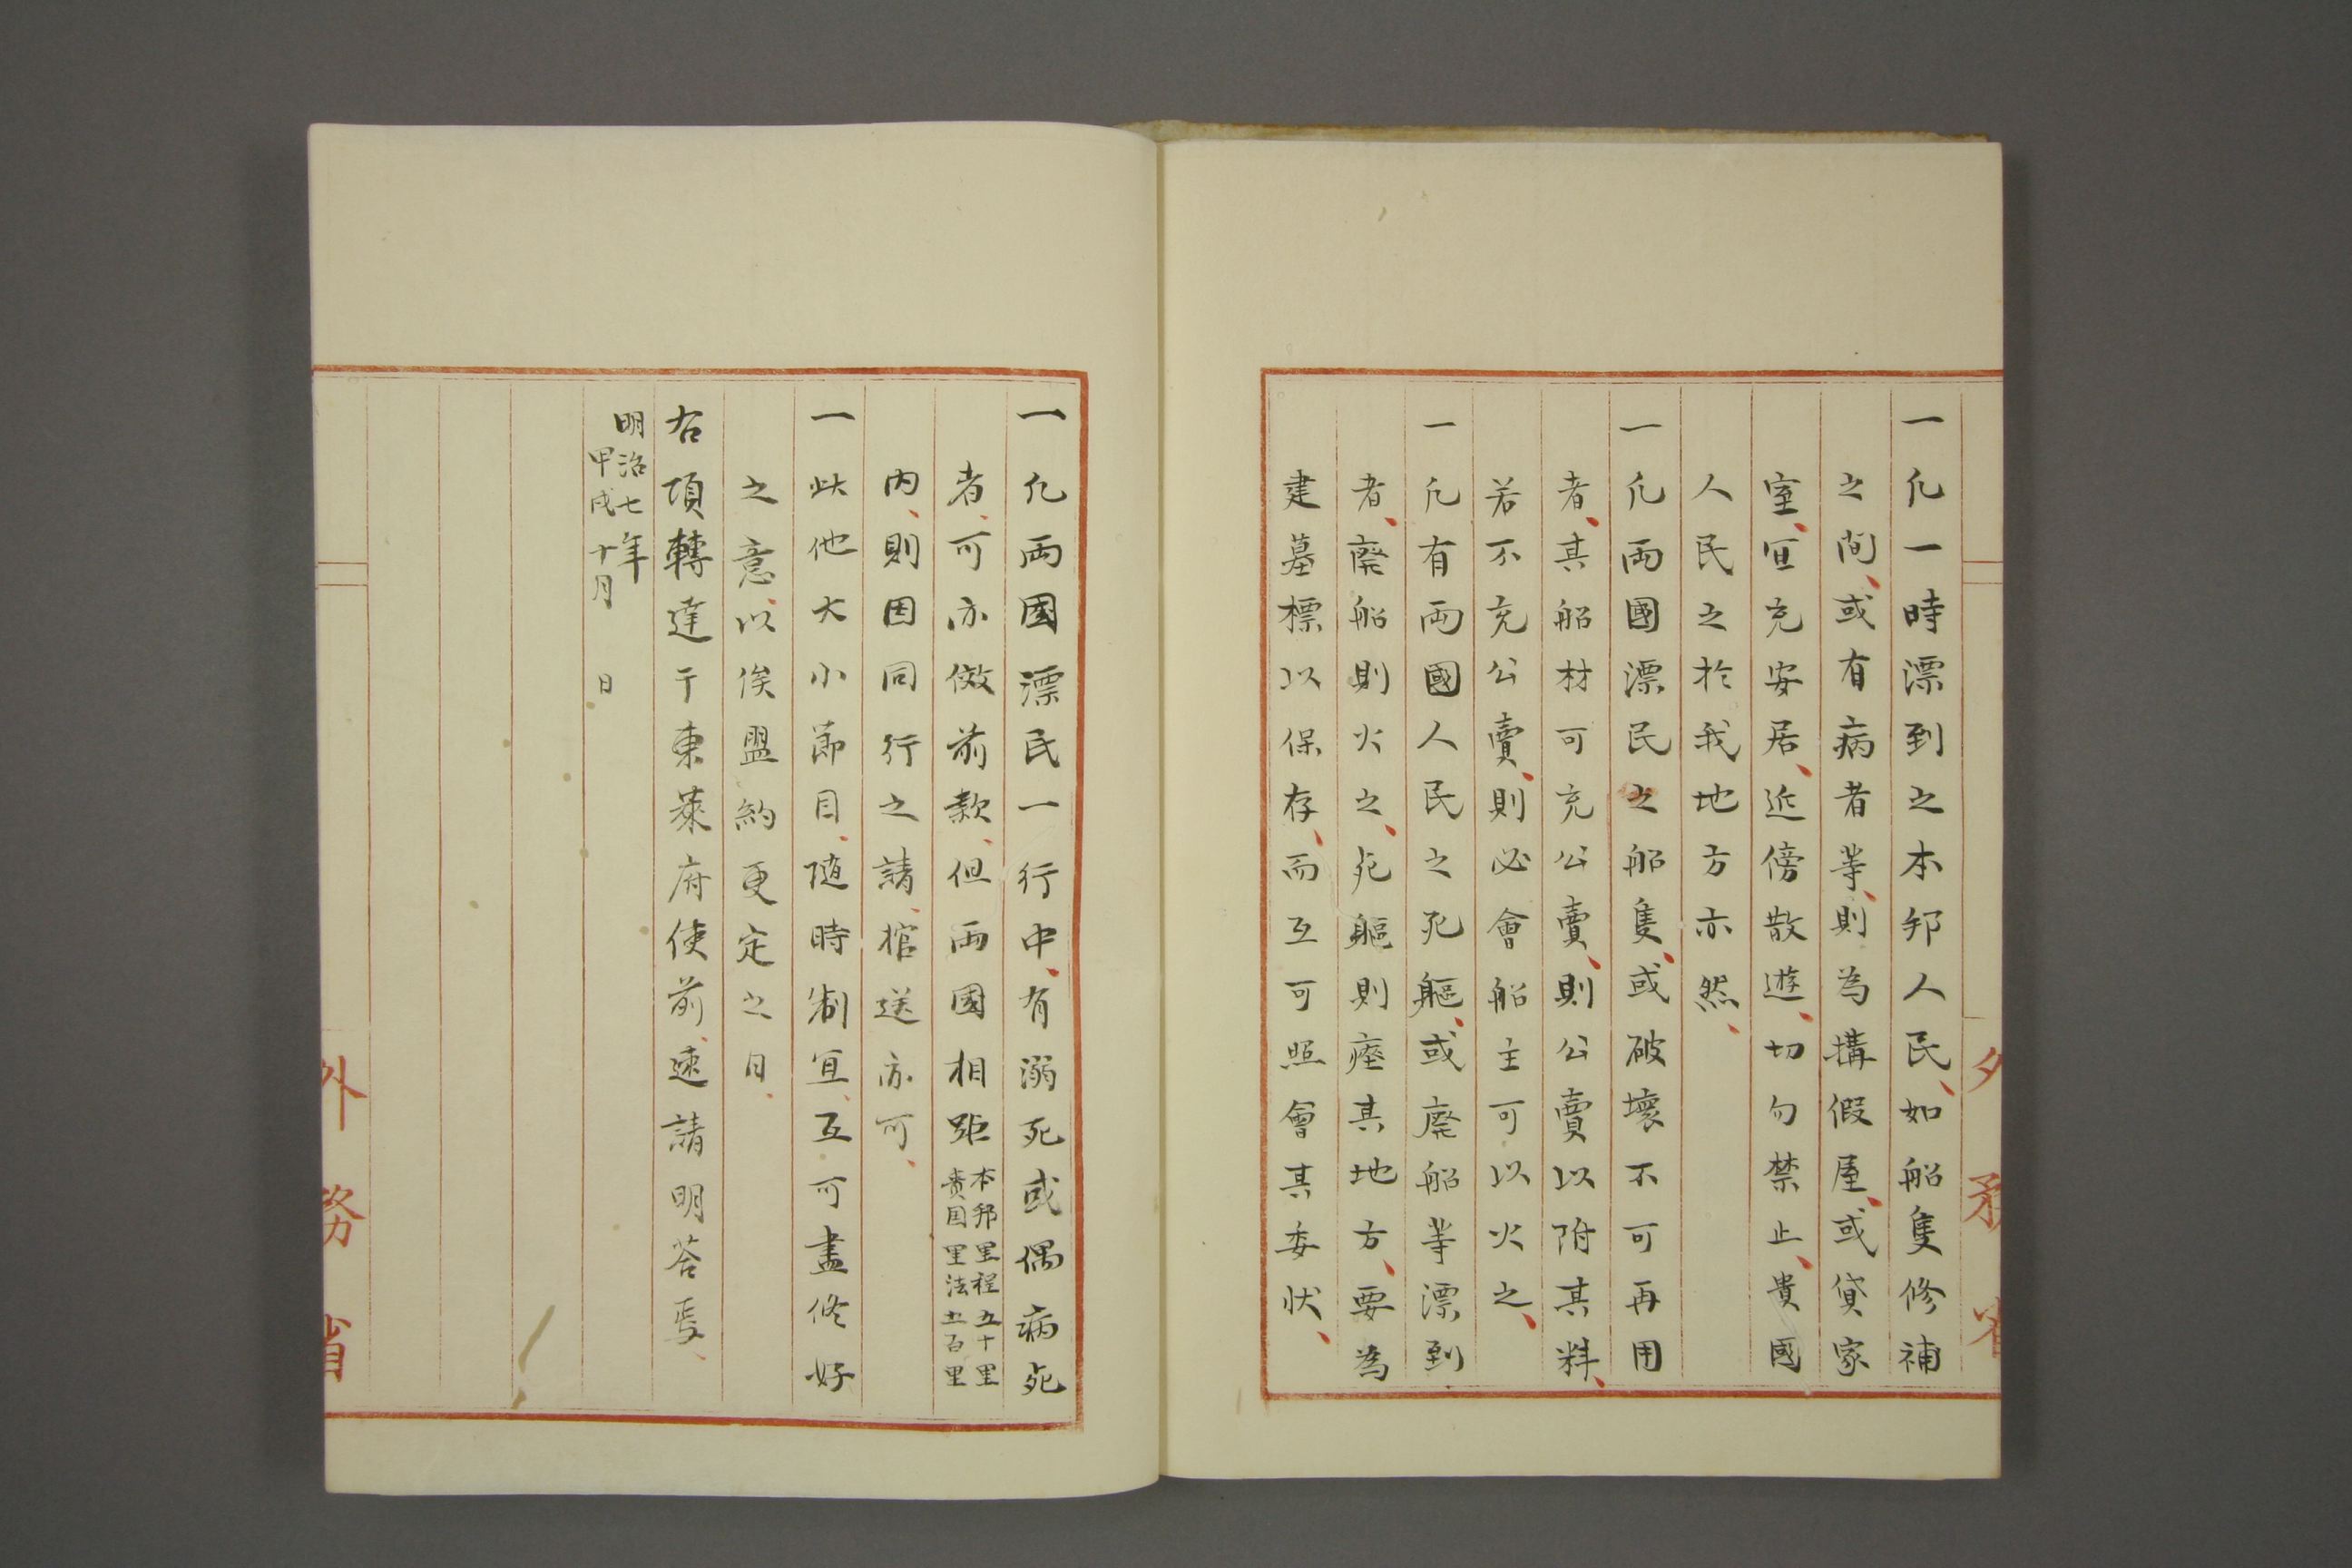 一凢一時漂到之本邦人民、如船隻修補
之間、或有病者等、則為搆假屋、或貸家
室、宜充安居、近傍散遊、切勿禁止、貴國
人民之於我地方亦然、
一凢兩國漂民之船隻、或破壞不可再用
者、其船材可充公賣、則公賣以附其料、
若不充公賣、則必會船主可以火之、
一凢有兩國人民之死軀、或廢船等漂到
者、廢船則火之、死軀則瘞其地方、要為
建墓標以保存、而互可照會其委状、
一凢兩國漂民一行中、有溺死或偶病死
者、可亦倣前款、但兩國相距本邦里程五十里貴国里法五百里
内、則因同行之請、棺送亦可、
一此他大小節目、随時制宜、互可盡修好
之意、以俟盟約更定之日、
右項轉達于東萊府使前、速請明荅焉、
明治七年
甲戌十月 日
外務省